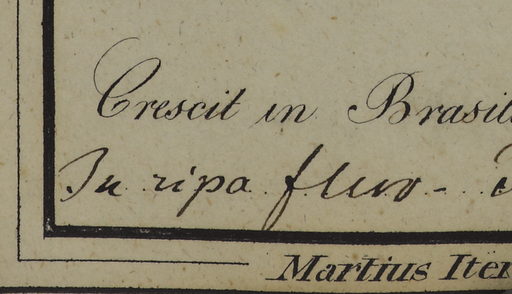 Crescit in Brasil
In ripa fluv-
Martius Iter